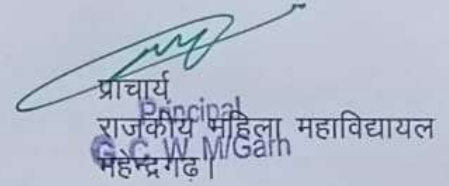 प्राचार्य
Principal
राजकीय महिला महाविद्यायल
G. C. W. M/Garh
महेन्द्रगढ़।